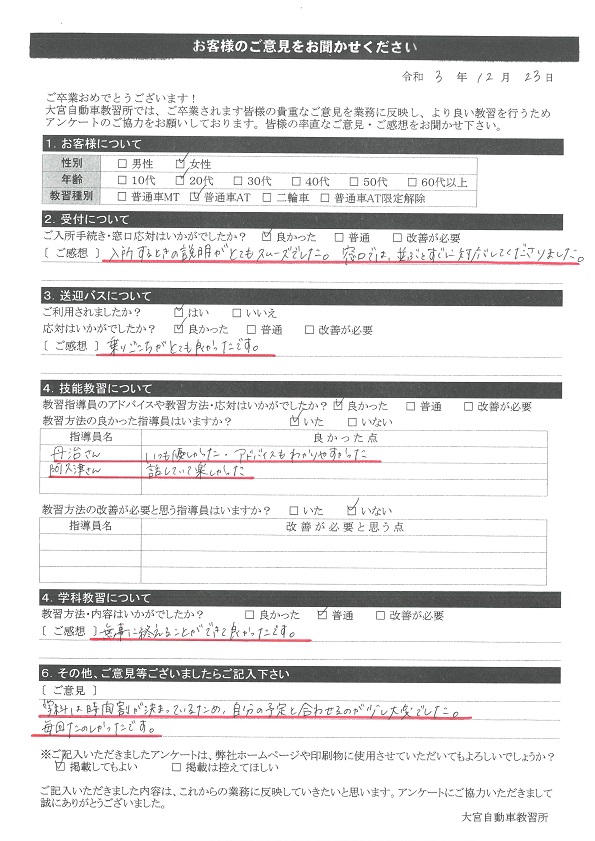 お客様のご意見をお聞かせください
令和 3 年 12 月 23 日
ご卒業おめでとうございます！
大宮自動車教習所では、ご卒業されます皆様の貴重なご意見を業務に反映し、より良い教習を行うため
アンケートのご協力をお願いしております。皆様の率直なご意見・ご感想をお聞かせ下さい。
1. お客様について
性別 □ 男性 ☑ 女性
年齢 □ 10代 ☑ 20代 □ 30代 □ 40代 □ 50代 □ 60代以上
教習種別 □ 普通車MT ☑ 普通車AT □ 二輪車 □ 普通車AT限定解除
2. 受付について
ご入所手続き・窓口応対はいかがでしたか？ ☑ 良かった □ 普通 □ 改善が必要
[ ご感想 ] 入所するときの説明がとてもスムーズでした。窓口では、並ぶとすぐに対応してくださりました。
3. 送迎バスについて
ご利用されましたか？ ☑ はい □ いいえ
応対はいかがでしたか？ ☑ 良かった □ 普通 □ 改善が必要
[ ご感想 ] 乗りごこちがとても良かったです。
4. 技能教習について
教習指導員のアドバイスや教習方法・応対はいかがでしたか？ ☑ 良かった □ 普通 □ 改善が必要
教習方法の良かった指導員はいますか？ ☑ いた □ いない
指導員名 良かった点
丹治さん いつも優しかった・アドバイスもわかりやすかった
阿久津さん 話していて楽しかった
教習方法の改善が必要と思う指導員はいますか？ □ いた ☑ いない
指導員名 改善が必要と思う点
4. 学科教習について
教習方法・内容はいかがでしたか？ □ 良かった ☑ 普通 □ 改善が必要
[ ご感想 ] 無事に終えることができて良かったです。
6. その他、ご意見等ございましたらご記入下さい
[ ご意見 ]
学科は時間割が決まっているため、自分の予定と合わせるのが少し大変でした。
毎回たのしかったです。
※ご記入いただきましたアンケートは、弊社ホームページや印刷物に使用させていただいてもよろしいでしょうか？
☑ 掲載してもよい □ 掲載は控えてほしい
ご記入いただきました内容は、これからの業務に反映していきたいと思います。アンケートにご協力いただきまして
誠にありがとうございました。
大宮自動車教習所